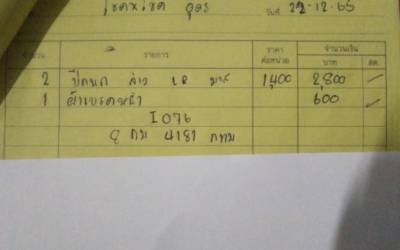 โชคชัย อุดร วันที่ 22-12-65
จำนวน รายการ ราคาต่อหน่วย จำนวนเงิน บาท สต.
2 ปีกนก ล่าง LR 1,400 2,800
1 ผ้าเบรคหน้า 600
I 076
8 กผ 4181 กทม